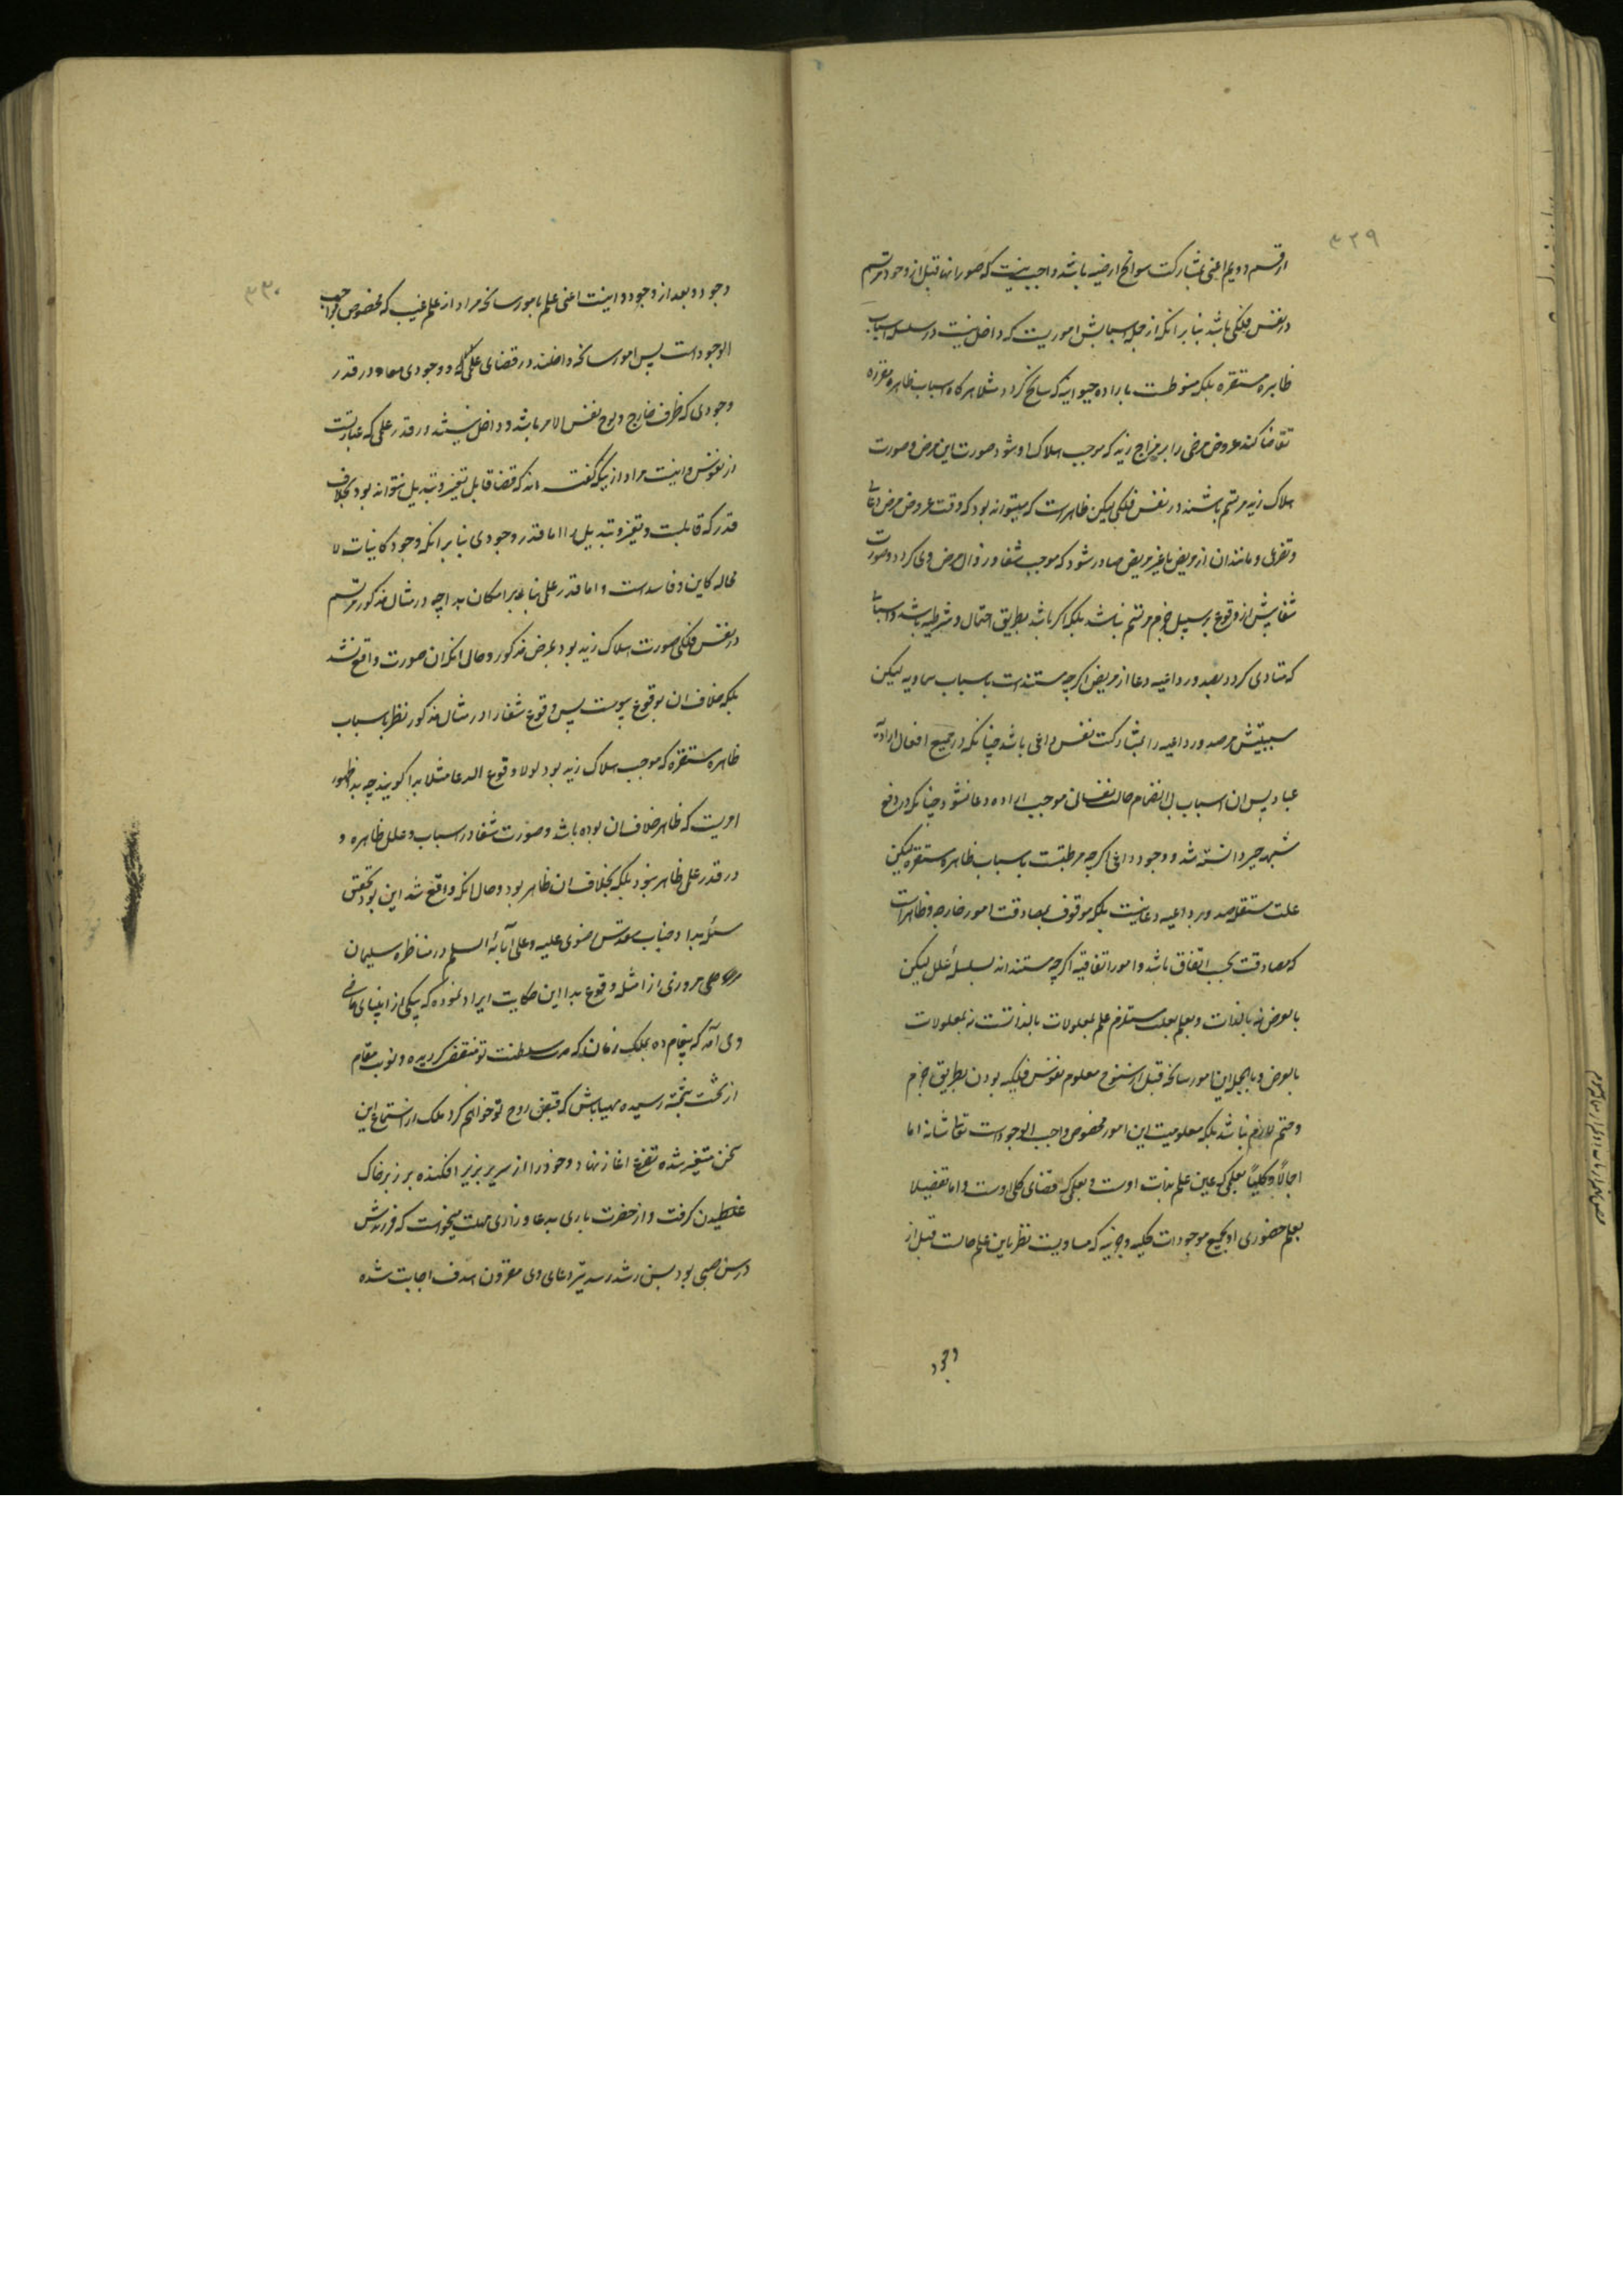 ۳۲۹
از قسم دویم اعنی بمشارکت سوانح ارضیه باشد واجب نیست که صور انها قبل از وجود مرتسم
در نفس فلکی باشد بنا بر انکه از جمله اسبابش اموریست که داخل نیست در سلسله اسباب
ظاهره مستقره بلکه منوطست باراده حیوانیه که سانح کردد مثلا هرکاه اسباب ظاهره مقرره
تقاضا کند عروض مرضی را بر مزاج زید که موجب هلاک او شود صورت این مرض و صورت
هلاک زید مرتسم باشند در نفس فلکی لیکن ظاهرست که میتواند بود که وقت عروض مرض دعائی
و تضرعی و مانند ان از مریض یا غیر مریض صادر شود که موجب شفا و زوال مرض وی کردد و صورت
شفا پیش از وقوع بر سبیل جزم مرتسم نباشد بلکه اکر باشد بطریق احتمال و شرطیه باشد و اسبابی
که متادی کردد بصدور داعیه دعا از مریض اکرچه مستندست باسباب سماویه لیکن
سببیتش مر صدور داعیه را بمشارکت نفس داعی باشد چنانکه در جمیع افعال ارادیه
عباد پس ان اسباب بی انضمام حالت نفسانی موجب اراده دعا نشود چنانکه در دفع
شبهه جبر دانسته شد و وجود داعی اکرچه مرتبطست باسباب ظاهره مستقره لیکن
علت مستقله صدور داعیه دعا نیست بلکه موقوف بمصادقت امور خارجه و ظاهرست
که مصادقت بحسب اتفاق باشد و امور اتفاقیه اکرچه مستنداند بسلسلهٔ علل لیکن
بالعرض نه بالذات و علم بعلت مستلزم علم بمعلولات بالذاتست نه بمعلولات
بالعرض و بالجمله این امور سانحه قبل از سنوح معلوم نفوس فلکیه بودن بطریق جزم
و حتم لازم نباشد بلکه معلومیت این امور مخصوص واجب الوجودست تعالی شانه اما
اجمالاً و کلیاً بعلمی که عین علم بذات اوست و بعلمی که قضای کلی اوست و اما تفضیلا
بعلم حضوری او بجمیع موجودات کلیه و جزئیه که مساویست نظر باین علم حالت قبل از
وجود
۳۳۰
وجود و بعد از وجود و اینست اعنی علم بامور سانحه مراد از علم غیب که مخصوص بواجب
الوجودست پس امور سانحه داخلند در قضای علمی و وجودی معا و در قدر
وجودی که ظرف خارج و لوح نفس الامر باشد و داخل نیستند در قدر علمی که عبارتست
از نفوس و اینست مراد از انکه گفته اند که قضا قابل تغییر و تبدیل نتواند بود بخلاف
قدر که قابلست و تغییر و تبدیل را اما قدر وجودی بنا بر انکه وجود کاینات لا
محاله کاین و فاسدست و اما قدر علمی بنا بر امکان بدا چه در مثال مذکور مرتسم
در نفس فلکی صورت هلاک زید بود بمرض مذکور و حال انکه ان صورت واقع نشد
بلکه خلاف ان بوقوع پیوست پس وقوع شفا را در مثال مذکور نظر باسباب
ظاهره مستقره که موجب هلاک زید بود لولا وقوع الدعا مثلا بدا کویند چه بدا ظهور
امریست که ظاهر خلاف ان بوده باشد و صورت شفا در اسباب و علل ظاهره و
در قدر علمی ظاهر نبود بلکه بخلاف ان ظاهر بود و حال انکه واقع شد این بود تحقیق
مسئله بدا و جناب مقدس رضوی علیه و علی آبائه السلم در مناظره سلیمان
مروزی از امثله وقوع بدا این حکایت ایراد نموده که بیکی از انبیای ماضی
وحی آمد که پیغام ده بملک زمان که مدت سلطنت تو منقضی کردیده و نوبت مقام
از تخت بتخته رسیده مهیا باش که قبض روح تو خواهم کرد ملک از استماع این
سخن متغیر شده تضرع اغاز نهاد و خود را از سریر بزیر افکنده بر زبر خاک
غلطیدن کرفت و از حضرت باری بدعا و زاری مهلت میخواست که فرزندش
در سن صبی بود بسن رشد رسد تیر دعای وی مقرون هدف اجابت شده